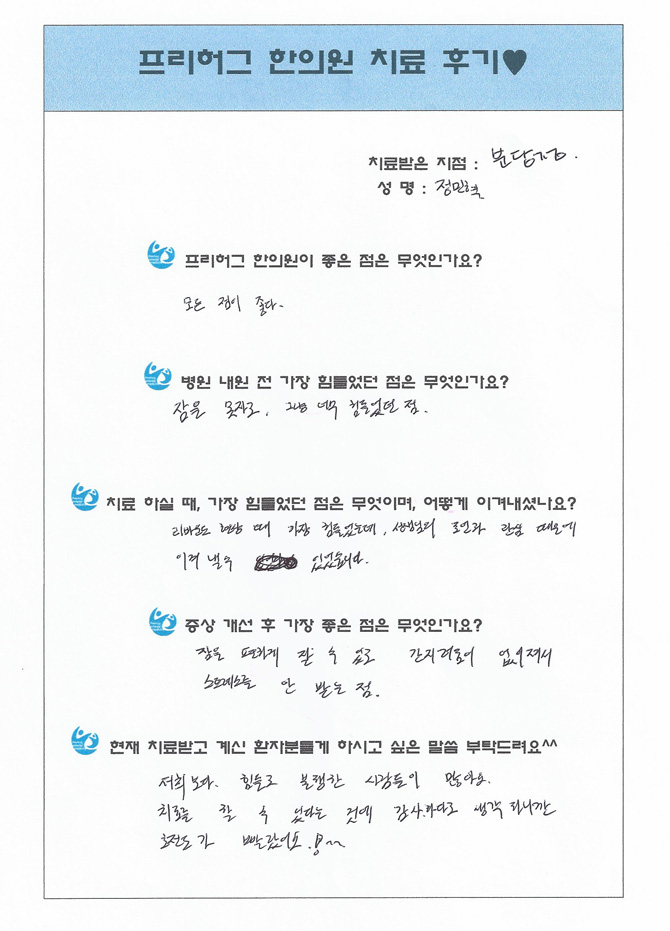 프리허그 한의원 치료 후기♥
치료받은 지점 : 분당점.
성 명 : 정민혁
프리허그 한의원이 좋은 점은 무엇인가요?
모든 점이 좋다.
병원 내원 전 가장 힘들었던 점은 무엇인가요?
잠을 못자고, 그냥 너무 힘들었던 점.
치료 하실 때, 가장 힘들었던 점은 무엇이며, 어떻게 이겨내셨나요?
리바운드 현상 때 가장 힘들었는데, 선생님의 조언과 관심 때문에
이겨 낼수 있었습니다.
증상 개선 후 가장 좋은 점은 무엇인가요?
잠을 편하게 잘 수 있고 간지러움이 없어져서
스트레스를 안 받는 점.
현재 치료받고 계신 환자분들게 하시고 싶은 말씀 부탁드려요^^
저희보다. 힘들고 불행한 사람들이 많아요.
치료를 할 수 있다는 것에 감사하다고 생각 하니깐
호전도가 빨랐어요.!~~